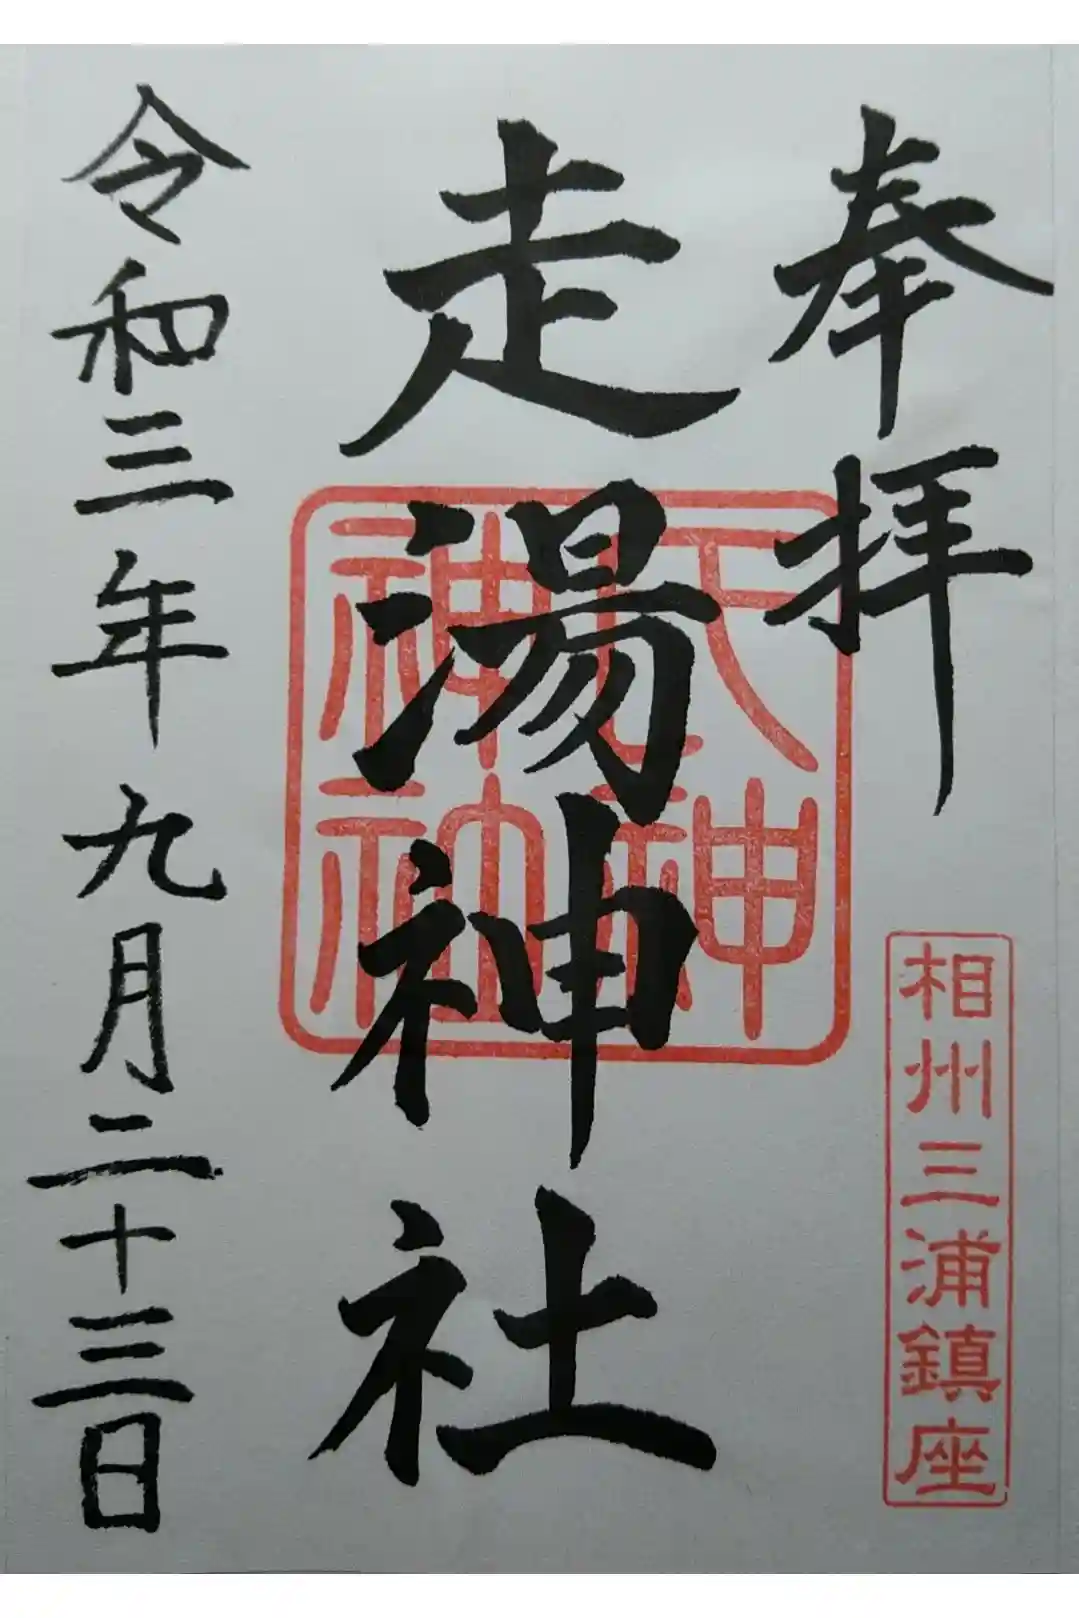 奉拝
相州三浦鎮座
走湯神社
天神
神社
令和三年九月二十三日